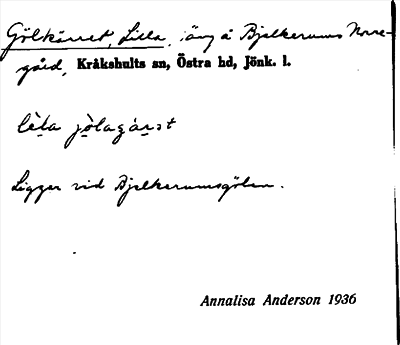 Gölkärret, Lilla, äng å Bjelkerums Norre-
gård, Kråkshults sn, Östra hd, Jönk. l.
lèta jòlagár̲ət
Ligger vid Bjelkerumsgölen.
Annalisa Anderson 1936